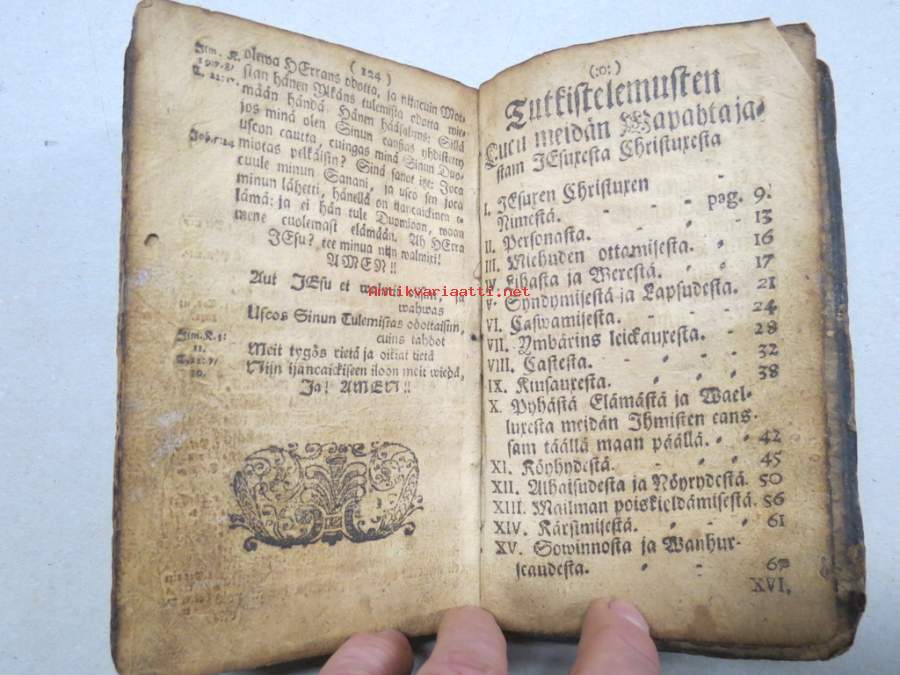 ( 124 )
olewa HErrans odotta, ja nijtacuin Mor-
sian hänen Ylkäns tulemista odotta wie-
mään händä: Hänen hääsalijns: Sillä
jos minä olen Sinun canßas yhdistetty
uscon cautta, cuingas minä Sinun Duo-
miotas pelkäisin? Sinä sanot itze: Joca
cuule minun Sanani, ja usco sen joca
minun lähetti, hänellä on ijancaickinen e-
lämä: ja ei hän tule Duomioon, waan
mene cuolemast elämään. Ah HErra
JEsu? tee minua nijn walmixi!
AMEN!!
Aut JEsu et
wahwas
Uscos Sinun Tulemistas odottaisin,
cuins tahdot
Meit tygös rietä ja oikiat tietä
Nijn ijancaickiseen iloon meit wiedä,
Ja! AMEN!!
Jim. K.
Joh. 5: 24
Jim. K. 3:
11.
20.
(:o:)
Tutkistelemusten
Lucu meidän Wapahtaja-
stam JEsuxesta Christuxesta
I. JEsuxen Christuxen
Nimestä. - - - pag. 9.
II. Personasta. - - - 13
III. Miehuden ottamisesta. - 16
IV. Lihasta ja Werestä. - - 17
V. Syndymisestä ja Lapsudesta. 21
VI. Caswamisesta. - - - 24
VII. Ymbärins leickauxesta. - 28
VIII. Castesta. - - - 32
IX. Kiusauxesta. - - - 38
X. Pyhästä Elämästä ja Wael-
luxesta meidän Ihmisten cans-
sam täällä maan päällä. - - 42
XI. Köyhydestä. - - - 45
XII. Alhaisudesta ja Nöyrydestä. 50
XIII. Mailman poiskieldämisestä. 56
XIV. Kärsimisestä. - - - 61
XV. Sowinnosta ja Wanhur-
scaudesta. - - - 67
XVI.
Antikvariaatti.net